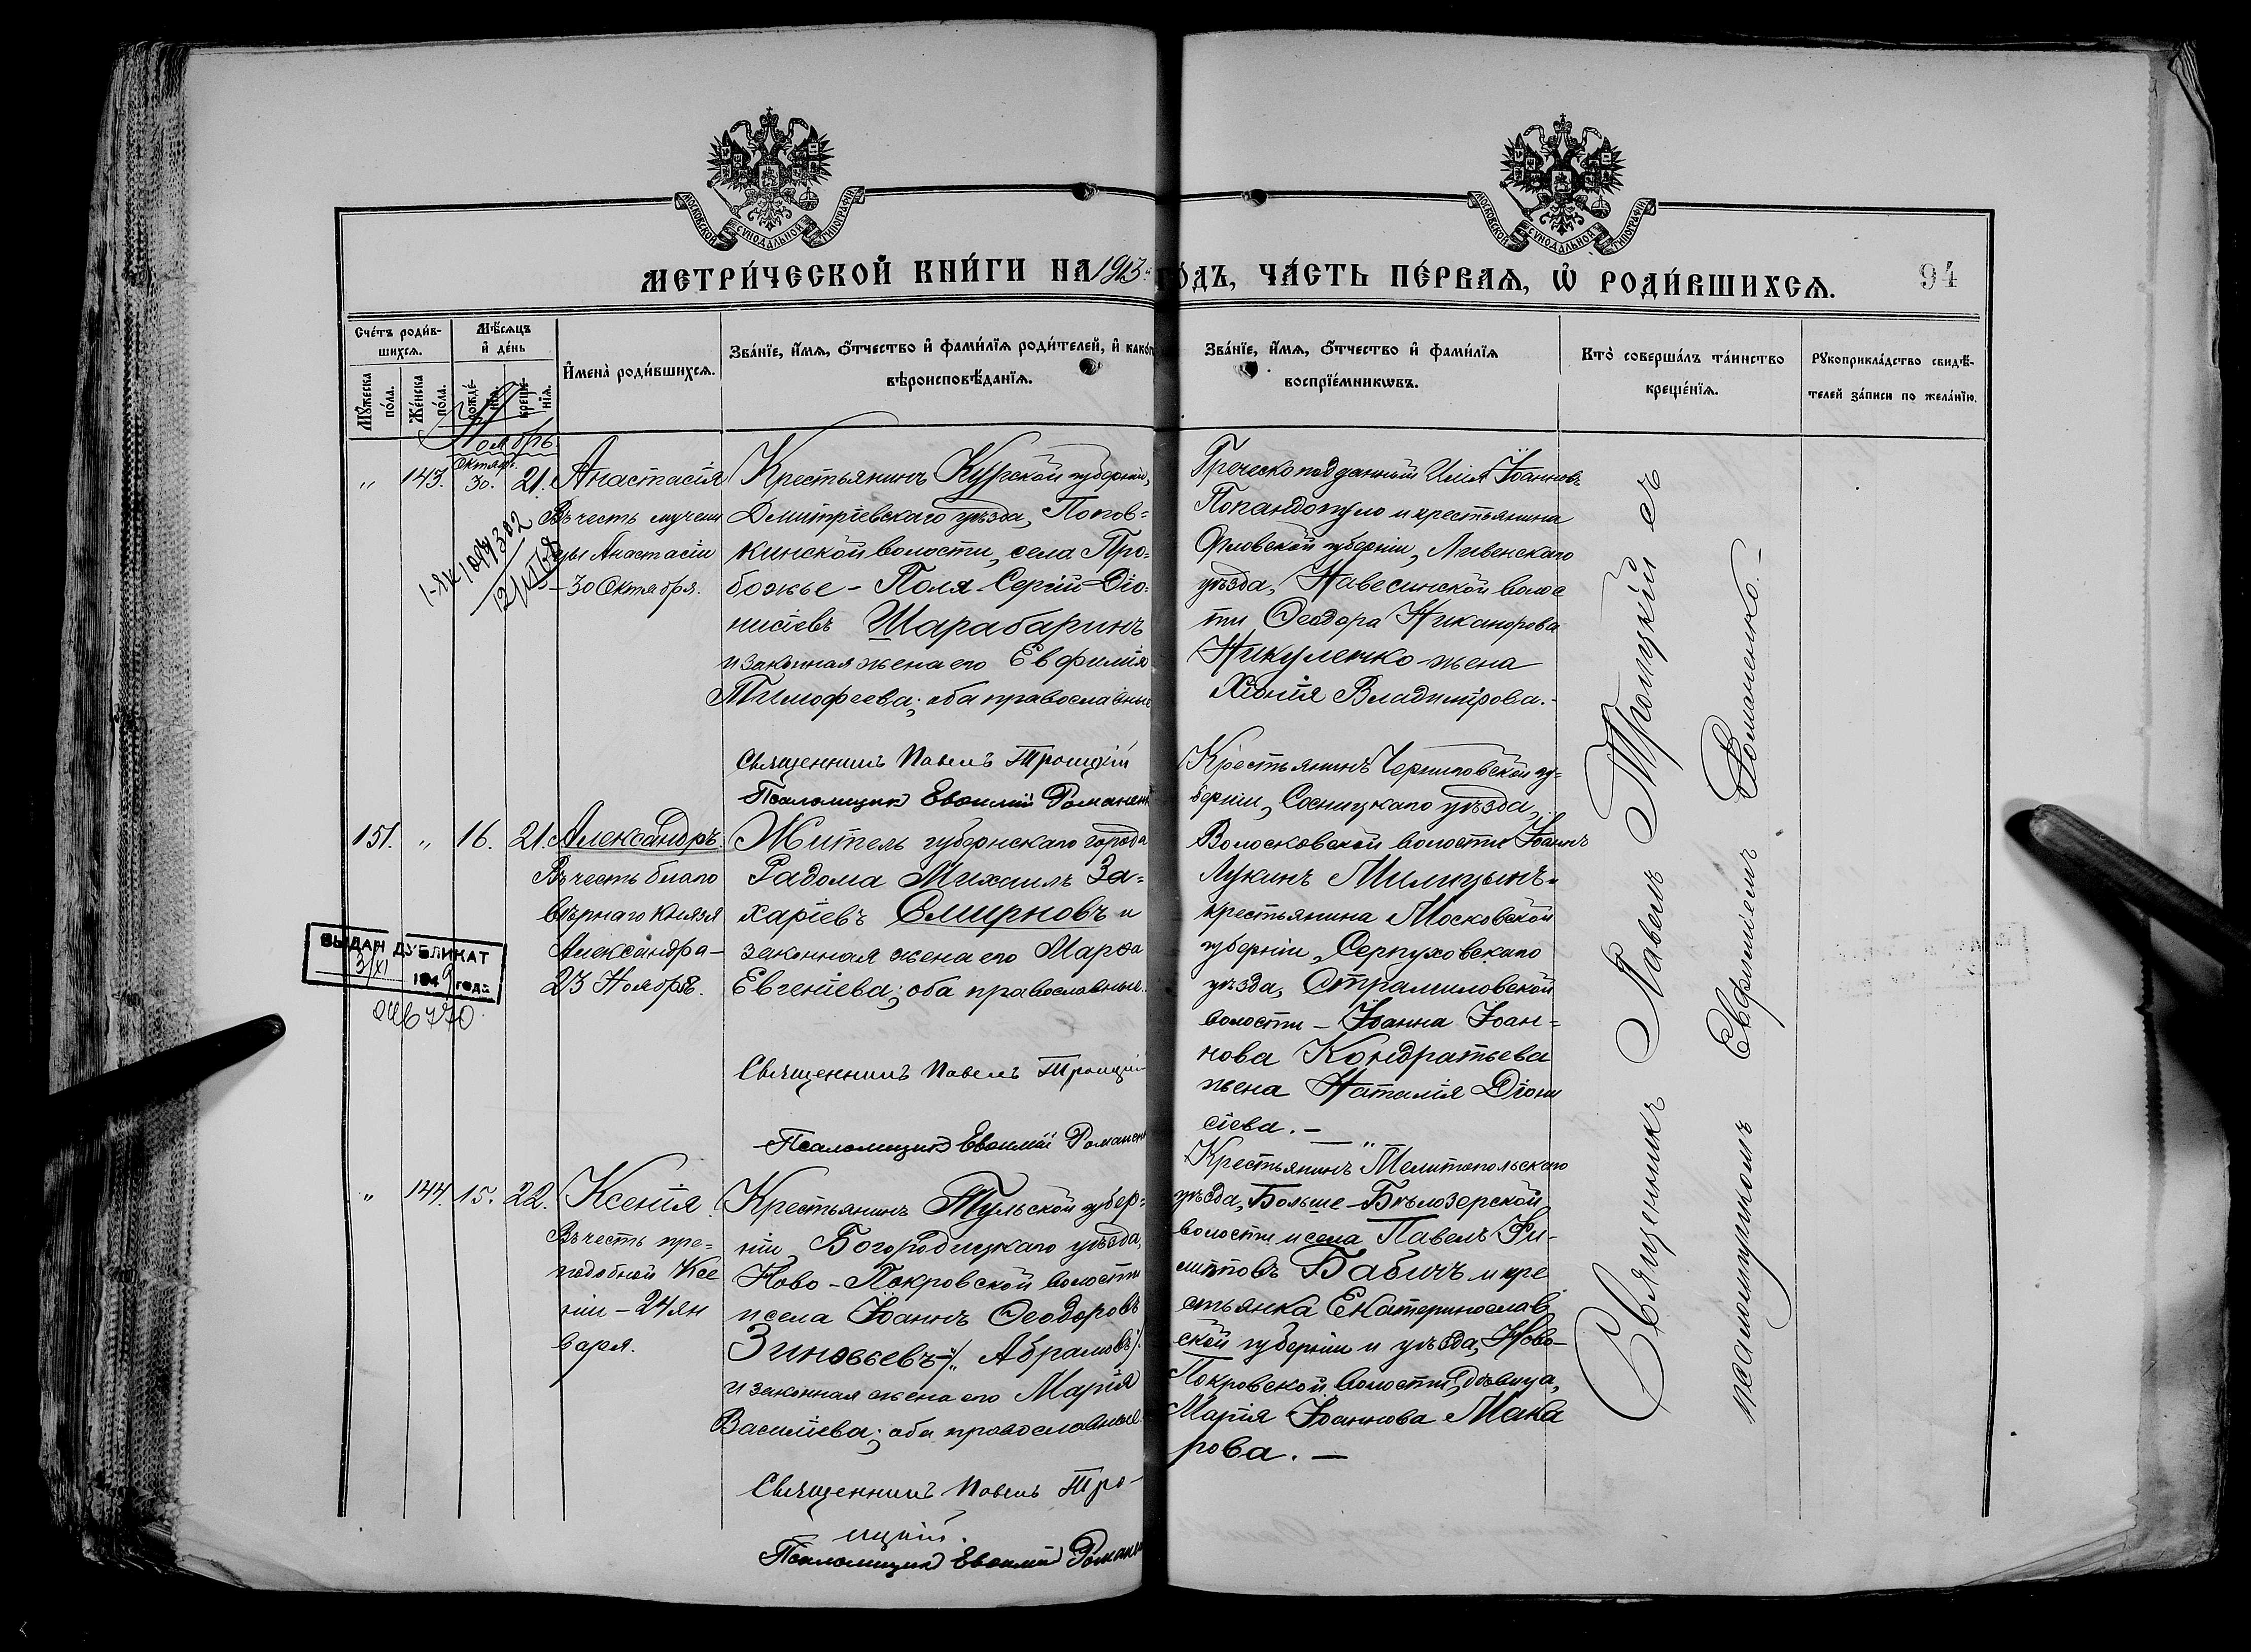 МОСКОВСКОЙ СѴНОДАЛЬНОЙ ТИПОГРАФІИ
МОСКОВСКОЙ СѴНОДАЛЬНОЙ ТИПОГРАФІИ
МЕТРИ́ЧЕСКОЙ КНИ́ГИ НА 1913 й ГО́ДЪ, ЧА́СТЬ ПЕ́РВАѦ, Ѡ҆ РОДИ́ВШИХСѦ.
94
Сче́тъ роди́в-
шихсѧ.
Мꙋ́жеска по́ла.
Же́нска по́ла.
Мѣ́сѧцъ
и҆ де́нь
рожде́-
нїѧ.
креще́-
нїѧ.
И҆мена̀ роди́вшихсѧ.
Зва́нїе, и҆́мѧ, ѻ҆́тчество и҆ фами́лїѧ роди́телей, и҆ како́гѡ
вѣроисповѣ́данїѧ.
Зва́нїе, и҆́мѧ, ѻ҆́тчество и҆ фами́лїѧ
воспрїе́мникѡвъ.
Кто̀ соверша́лъ та́инство
креще́нїѧ.
Рꙋкоприкла́дство свидѣ́-
телей за́писи по жела́нїю.
Ноябрь
„ 143. Октяб. 30. 21.
Анастасія
Въ честь мучени
цы Анастасіи
– 30 Октября.
Крестьянинъ Курской губерніи,
Дмитріевскаго уѣзда, Попов=
кинской волости, села Про=
божье – Поля Сергій Діо=
нисіевъ Шарабаринъ
и законная жена его Евфимія
Тимофеева; оба православные
Священникъ Павелъ Троицкій
Псаломщик Евөимій Романенк
Греческоподданный Илія Іоанновъ
Попандопуло и крестьянина
Орловской губерніи, Ливенскаго
уѣзда, Навесинской волос
ти Ѳеодора Никанорова
Никуленко жена
Хіонія Владимірова.-
151. „ 16. 21.
Александръ.
Въ честь благо
вѣрнаго Князя
Александра –
23 Ноября.
Житель губернскаго города
Радома Михаилъ За=
харіевъ Смирновъ и
законная жена его Марѳа
Евгеніева; оба православные.
Священникъ Павелъ Троицкій
Псаломщик Евөимій Романен
Крестьянинъ Черниговской гу-
берніи, Сосницкаго уѣзда,
Волосковской волости Іоаннъ
Лукинъ Милицынъ.
крестьянина Московской
губерніи, Серпуховскаго
уѣзда, Стремиловской
волости – Іоанна Іоан=
нова Кондратьева
жена Наталія Діони
сіева. –
ВЫДАН ДУБЛИКАТ
3/XI 1949 года
„ 144. 15. 22.
Ксенія
Въ честь пре=
подобной Ксе
ніи – 24 ян
варя.
Крестьянинъ Тульской губер=
ніи, Богородицкаго уѣзда,
Ново – Покровской волости
и села Іоаннъ Ѳеодоровъ
Зиновьевъ /: Абрамовъ :/
и законная жена его Марія
Василіева; оба православные
Священникъ Павелъ Тро-
ицкій.
Псаломщик Евөимій Романен
Крестьянинъ Мелитопольскаго
уѣзда, Больше – Бѣлозерской
волости и села Павелъ Фи-
липповъ Бабичъ и кре
стьянка Екатеринослав
ской губерніи и уѣзда, Ново-
Покровской волости, дѣвица,
Марія Іоаннова Мака
рова. –
Священникъ Павелъ Троицкій съ
псаломщикомъ Евфиміемъ Романенко. –